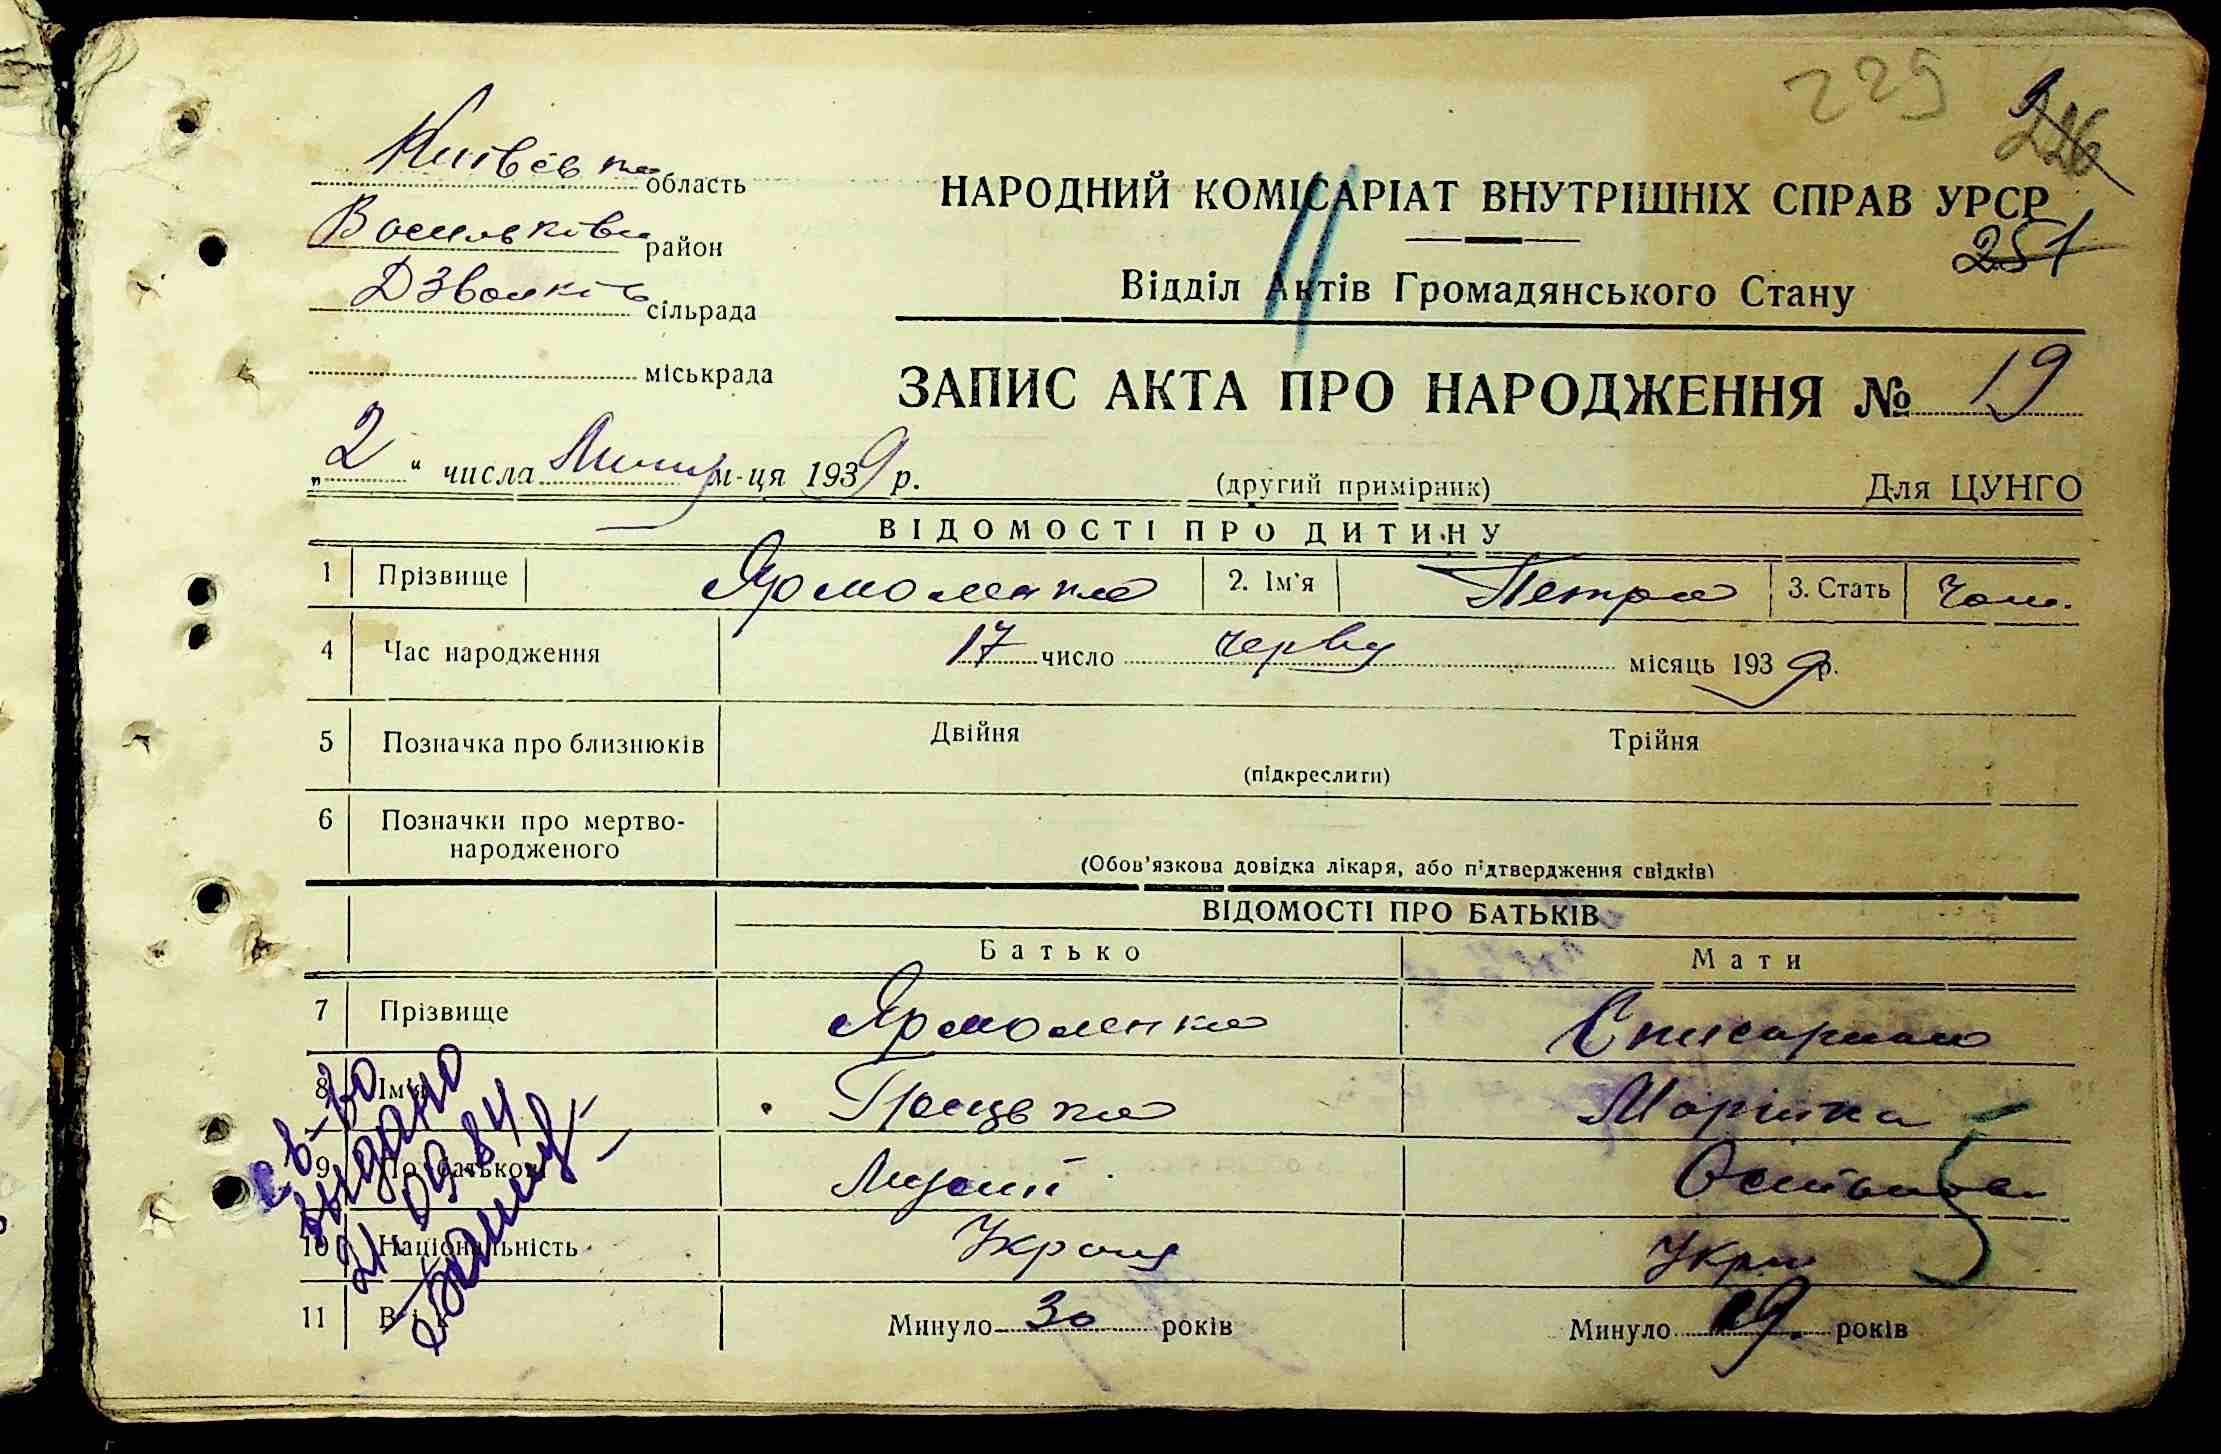 229
226
Київська область
НАРОДНИЙ КОМІСАРІАТ ВНУТРІШНІХ СПРАВ УРСР
251
Васильків район
Відділ Актів Громадянського Стану
Дзвінків сільрада
міськрада
ЗАПИС АКТА ПРО НАРОДЖЕННЯ № 19
„2“ числа м-ця 1939 р.
(другий примірник)
Для ЦУНГО
ВІДОМОСТІ ПРО ДИТИНУ
1 Прізвище Ярмоленко 2. Ім'я Петро 3. Стать Чол.
4 Час народження 17 число черву місяць 1939 р.
5 Позначка про близнюків Двійня Трійня
(підкреслити)
6 Позначки про мертво-
народженого
(Обов'язкова довідка лікаря, або підтвердження свідків)
ВІДОМОСТІ ПРО БАТЬКІВ
Батько Мати
7 Прізвище Ярмоленко
8 Ім'я Марійка
9 По батькові
10 Національність Укр
11 Вік Минуло 30 років Минуло років
св-во
видано
21 09 84